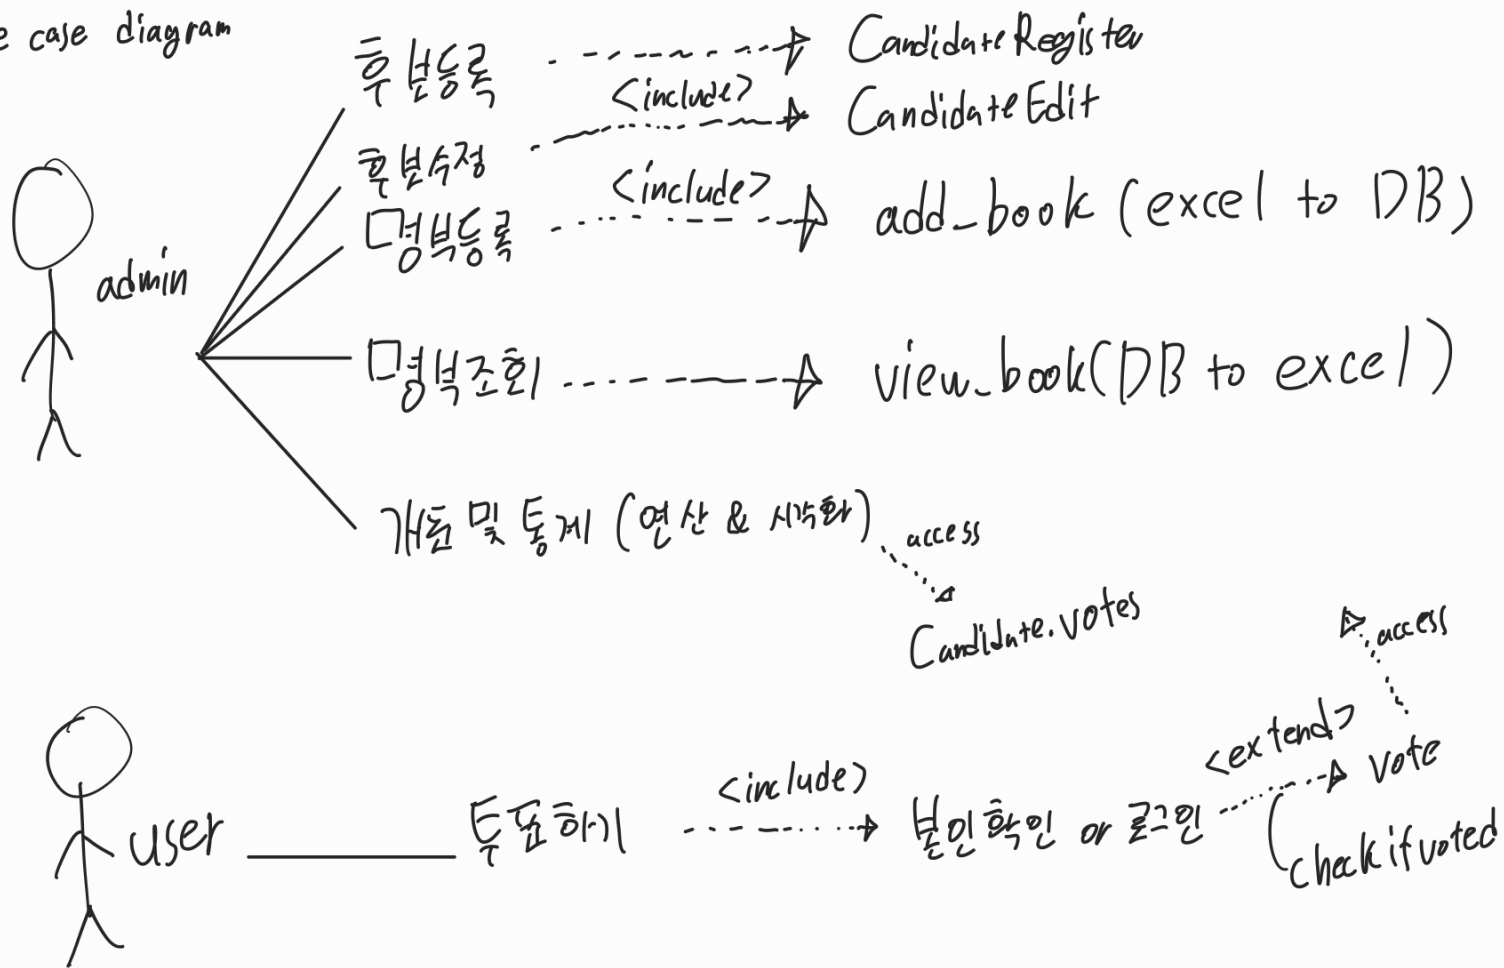 e case diagram
후보등록 CandidateRegister
<include>
후보수정 CandidateEdit
<include>
명부등록 add_book (excel to DB)
admin
명부조회 view_book(DB to excel)
개표 및 통계 (연산 & 시각화)
access
Candidate.votes
access
user 투표하기 <include> 본인확인 or 로그인 <extend> vote
check if voted